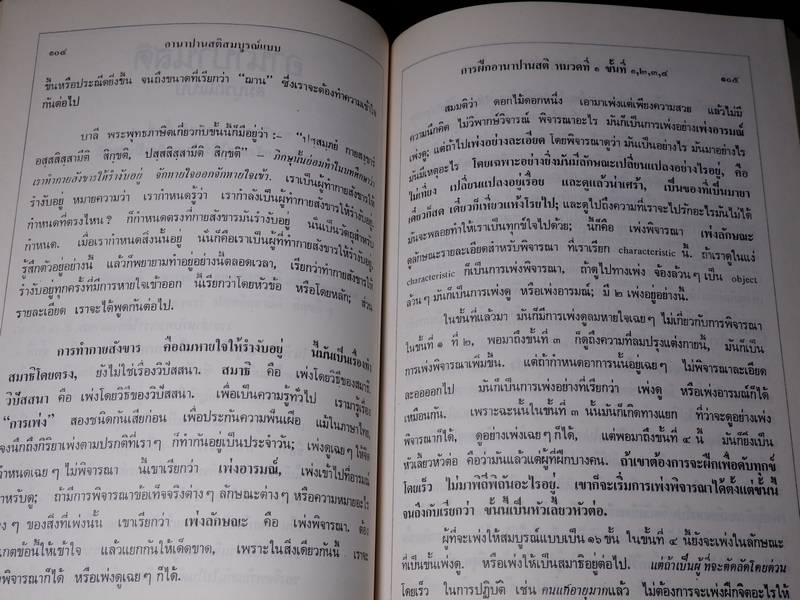 ๑๐๔ อานาปานสติสมบูรณ์แบบ
ขึ้นหรือประณีตยิ่งขึ้น จนถึงขนาดที่เรียกว่า “ฌาน” ซึ่งเราจะต้องทำความเข้าใจ
กันต่อไป
บาลี พระพุทธภาษิตเกี่ยวกับขั้นนี้ก็มีอยู่ว่า :– “ปสฺสมฺภยํ กายสงฺขารํ
อสฺสสิสฺสามีติ สิกฺขติ, ปสฺสสิสฺสามีติ สิกฺขติ” – ภิกษุนั้นย่อมทำในบทศึกษาว่า
เราทำกายสังขารให้รำงับอยู่ จักหายใจออกจักหายใจเข้า. เราเป็นผู้ทำกายสังขารให้
รำงับอยู่ หมายความว่า เรากำหนดรู้ว่า เรากำลังเป็นผู้ทำกายสังขารให้รำงับอยู่.
กำหนดที่ตรงไหน ? ก็กำหนดตรงที่กายสังขารมันรำงับอยู่ นั่นเป็นวัตถุสำหรับ
กำหนด. เมื่อเรากำหนดสิ่งนั้นอยู่ นั่นก็คือเราเป็นผู้ที่ทำกายสังขารให้รำงับอยู่,
รู้สึกตัวอยู่อย่างนี้ แล้วก็พยายามทำอยู่อย่างนี้ตลอดเวลา, เรียกว่าทำกายสังขารให้
รำงับอยู่ทุกครั้งที่มีการหายใจเข้าออก นี้เรียกว่าโดยหัวข้อ หรือโดยหลัก; ส่วน
รายละเอียด เราจะได้พูดกันต่อไป.
การทำกายสังขาร คือลมหายใจให้รำงับอยู่ นี้มันเป็นเรื่องทำ
สมาธิโดยตรง, ยังไม่ใช่เรื่องวิปัสสนา. สมาธิ คือ เพ่งโดยวิธีของสมาธิ.
วิปัสสนา คือ เพ่งโดยวิธีของวิปัสสนา. เพื่อเป็นความรู้ทั่วไป เรามารู้เรื่อง
“การเพ่ง” สองชนิดกันเสียก่อน เพื่อประกันความฟั่นเฝือ แม้ในภาษาไทย,
จงนึกถึงกิริยาเพ่งตามปรกติที่เรา ๆ ก็ทำกันอยู่เป็นประจำวัน; เพ่งดูเฉย ๆ ให้จิต
กำหนดเฉย ๆ ไม่พิจารณา นี้เขาเรียกว่า เพ่งอารมณ์, เพ่งเข้าไปที่อารมณ์
สำหรับดู; ถ้ามีการพิจารณาข้อเท็จจริงต่าง ๆ ลักษณะต่าง ๆ หรือความหมายอะไร
ๆ ของสิ่งที่เพ่งนั้น เขาเรียกว่า เพ่งลักษณะ คือ เพ่งพิจารณา. ต้อง
ข้อนี้ให้เข้าใจ แล้วแยกกันให้เด็ดขาด, เพราะในสิ่งเดียวกันนี้ เราจะ
พิจารณาก็ได้ หรือเพ่งดูเฉย ๆ ก็ได้.
การฝึกอานาปานสติ หมวดที่ ๑ ขั้นที่ ๑,๒,๓,๔ ๑๐๕
สมมติว่า ดอกไม้ดอกหนึ่ง เอามาเพ่งแต่เพียงความสวย แล้วไม่มี
ความนึกคิด ไม่วิพากษ์วิจารณ์ พิจารณาอะไร มันก็เป็นการเพ่งอย่างเพ่งอารมณ์
เพ่งดู; แต่ถ้าไปเพ่งอย่างละเอียด โดยพิจารณาดูว่า มันเป็นอย่างไร มันมาอย่างไร
มันมีเหตุอะไร โดยเฉพาะอย่างยิ่งมันมีลักษณะเปลี่ยนแปลงอย่างไรอยู่, คือ
ไม่เที่ยง เปลี่ยนแปลงอยู่เรื่อย และดูแล้วน่าเศร้า, เป็นของที่เป็นมายา
เดี๋ยวก็สด เดี๋ยวก็เหี่ยวแห้งโรยไป; และดูไปถึงความที่เราจะไปรักอะไรมันไม่ได้
มันจะพลอยทำให้เราเป็นทุกข์ใจไปด้วย; นี้ก็คือ เพ่งพิจารณา เพ่งลักษณะ
ดูลักษณะรายละเอียดสำหรับพิจารณา ที่เราเรียก characteristic นี้. ถ้าเราดูในแง่
characteristic ก็เป็นการเพ่งพิจารณา, ถ้าดูไปทางเพ่ง จ้องล้วน ๆ เป็น object
ล้วน ๆ มันก็เป็นการเพ่งดู หรือเพ่งอารมณ์; มี ๒ เพ่งอยู่อย่างนี้.
ในขั้นที่แล้วมา มันก็มีการเพ่งดูลมหายใจเฉย ๆ ไม่เกี่ยวกับการพิจารณา
ในขั้นที่ ๑ ที่ ๒, พอมาถึงขั้นที่ ๓ ก็ดูถึงความที่ลมปรุงแต่งกายนี้, มันก็เป็น
การเพ่งพิจารณาเพิ่มขึ้น. แต่ถ้ากำหนดอาการนั้นอยู่เฉย ๆ ไม่พิจารณาละเอียด
ละออออกไป มันก็เป็นการเพ่งอย่างที่เรียกว่า เพ่งดู หรือเพ่งอารมณ์ก็ได้
เหมือนกัน. เพราะฉะนั้นในขั้นที่ ๓ นั้นมันก็เกิดทางแยก ที่ว่าจะดูอย่างเพ่ง
พิจารณาก็ได้, ดูอย่างเพ่งเฉย ๆ ก็ได้, แต่พอมาถึงขั้นที่ ๔ นี้ มันก็ยิ่งเป็น
หัวเลี้ยวหัวต่อ คือว่ามันแล้วแต่ผู้ที่ฝึกบางคน. ถ้าเขาต้องการจะฝึกเพื่อดับทุกข์
โดยเร็ว ไม่มาพิถีพิถันอะไรอยู่. เขาก็จะเริ่มการเพ่งพิจารณาได้ตั้งแต่ขั้นนี้
จนถึงกับเรียกว่า ขั้นนี้เป็นหัวเลี้ยวหัวต่อ.
ผู้ที่จะเพ่งให้สมบูรณ์แบบเป็น ๑๖ ขั้น ในขั้นที่ ๔ นี้ยังจะเพ่งในลักษณะ
ที่เป็นขั้นเพ่งดู. หรือเพ่งให้เป็นสมาธิอยู่ต่อไป. แต่ถ้าเป็นผู้ ที่จะตัดลัดโดยด่วน
โดยเร็ว ในการปฏิบัติ เช่น คนแก่อายุมากแล้ว ไม่ต้องการจะเพ่งฝึกจิตอะไรให้